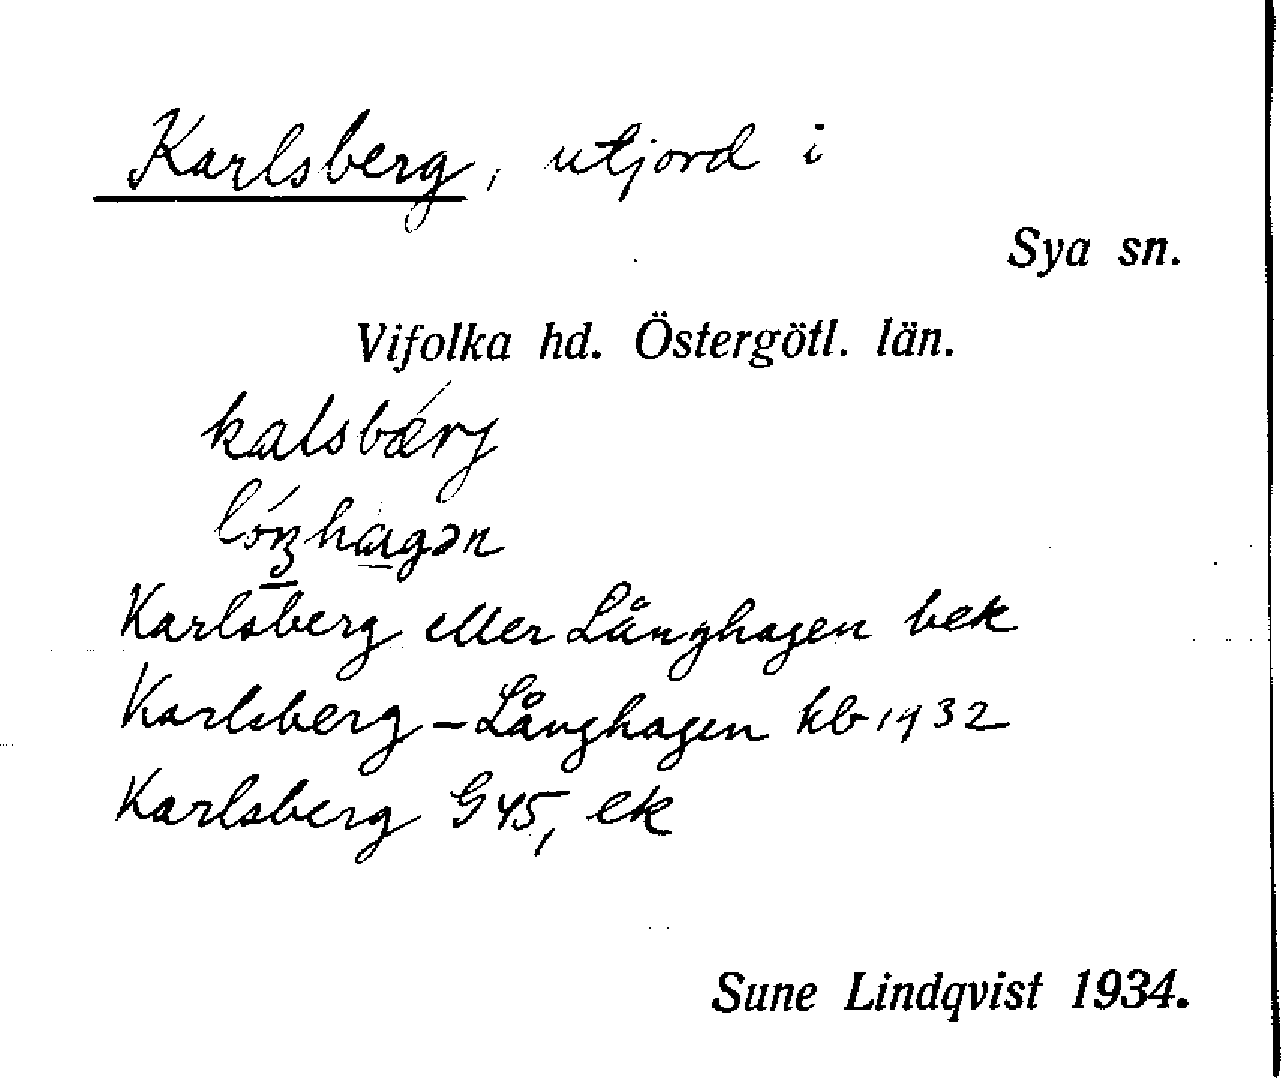 Karlsberg, utjord i
Sya sn.
Vifolka hd. Östergötl. län.
kalsbærj
lóŋhagən
Karlsberg eller Långhagen bek
Karlsberg – Långhagen hb 1932
Karlsberg G45, ek
Sune Lindqvist 1934.